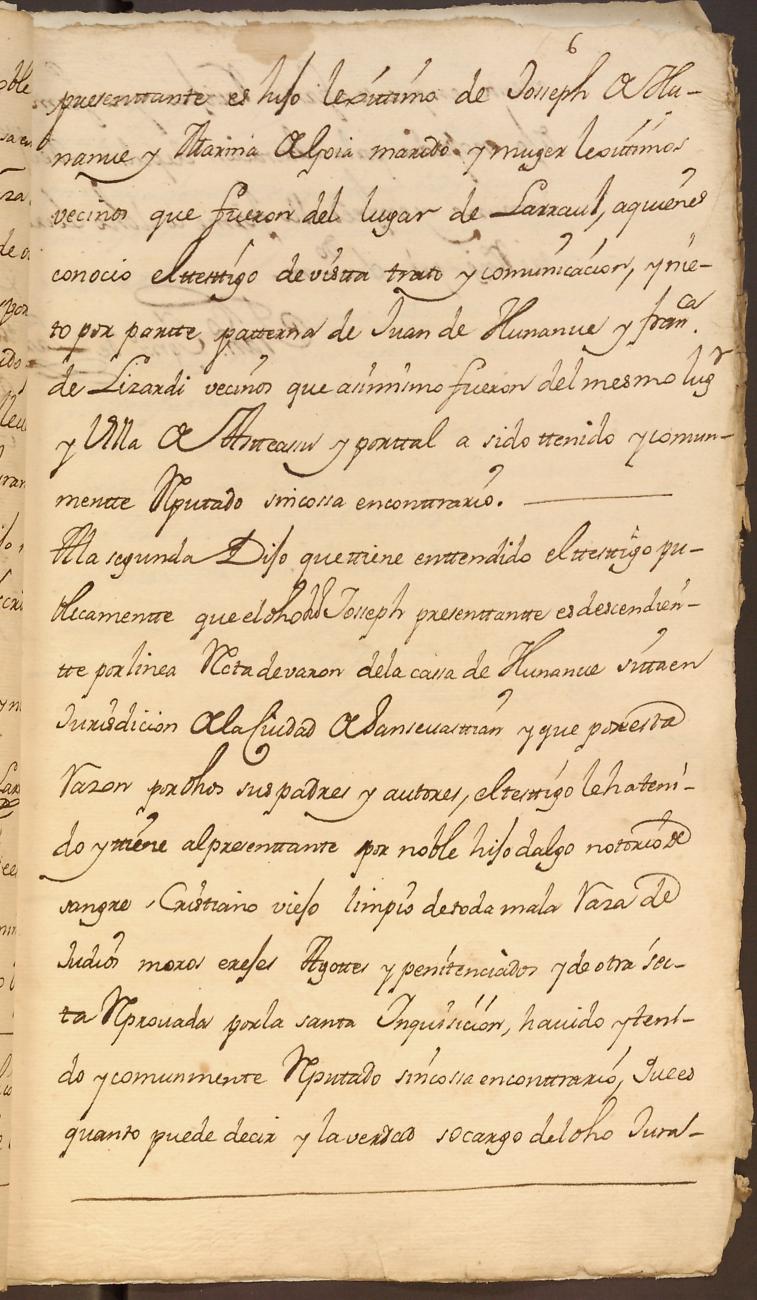 6
presenttante es hijo lexittimo de Joseph de Hu-
nanue y Marina de Goia marido y muger lexittimos
vecinos que fueron del lugar de Larraul, aquienes
conocio elttesttigo de vistta trato y comunicacion, y nie-
to por partte patterna de Juan de Hunanue y fran.ca
de Lizardi vecinos que asimismo fueron del mesmo lugr
y Villa de Astteasu y porttal a sido ttenido y comun-
mentte Rputado sin cossa en conttrario.
Ala segunda Dijo que ttiene enttendido el ttesttigo pu-
blicamentte que el dho Joseph presenttantte es descendien-
tte por linea Rcta de varon de la cassa de Hunanue sitta en
Jurisdicion de la Ciudad de San seuasttian y que por esta
Razon por dhos sus padres y autores, el testtigo le ha teni-
do y ttiene al presenttante por noble hijo dalgo notorio de
sangre Cristiano viejo limpio de toda mala Raza de
Judios moros erejes Agottes y penitenciados y de otra sec-
ta Rprouada por la santa Inquisicion, hauido y teni-
do y comunmente Rputado sin cossa en conttrario, Que es
quanto puede decir y la verdad so cargo del dho Jura-